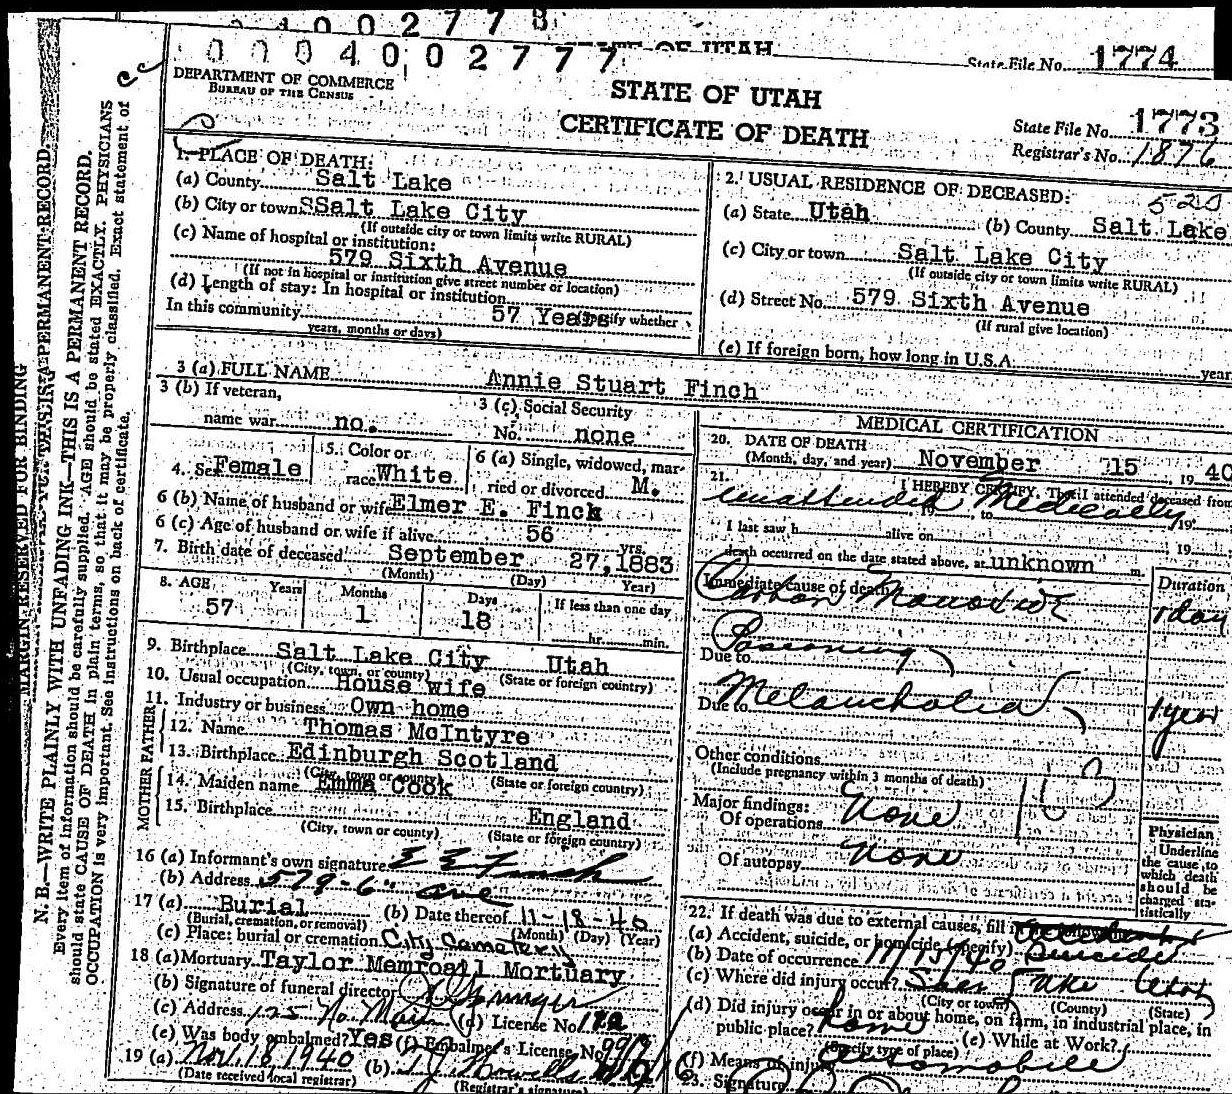 0 4 0 0 2 7 7 8
STATE OF UTAH
State File No. 1774
0 0 0 4 0 0 2 7 7 7
DEPARTMENT OF COMMERCE
BUREAU OF THE CENSUS
STATE OF UTAH
CERTIFICATE OF DEATH
State File No. 1773
Registrar's No. 1876
MARGIN RESERVED FOR BINDING
N. B.—WRITE PLAINLY WITH UNFADING INK—THIS IS A PERMANENT RECORD.
Every item of information should be carefully supplied. AGE should be stated EXACTLY. PHYSICIANS
should state CAUSE OF DEATH in plain terms, so that it may be properly classified. Exact statement of
OCCUPATION is very important. See instructions on back of certificate.
1. PLACE OF DEATH:
(a) County Salt Lake
(b) City or town SSalt Lake City
(If outside city or town limits write RURAL)
(c) Name of hospital or institution:
579 Sixth Avenue
(If not in hospital or institution give street number or location)
(d) Length of stay: In hospital or institution
(Specify whether
In this community 57 Years
years, months or days)
2. USUAL RESIDENCE OF DECEASED:
(a) State Utah (b) County Salt Lake
(c) City or town Salt Lake City
(If outside city or town limits write RURAL)
(d) Street No. 579 Sixth Avenue
(If rural give location)
(e) If foreign born, how long in U.S.A. year
3 (a) FULL NAME Annie Stuart Finch
3 (b) If veteran,
name war no.
3 (c) Social Security
No. none
4. Sex Female
5. Color or
race White
6 (a) Single, widowed, mar-
ried or divorced M.
6 (b) Name of husband or wife Elmer E. Finch
6 (c) Age of husband or wife if alive 56 yrs.
7. Birth date of deceased September 27, 1883
(Month) (Day) Year)
8. AGE Years Months Days If less than one day
57 1 18 hr. min.
9. Birthplace Salt Lake City Utah
(City, town, or county) (State or foreign country)
10. Usual occupation House wife
11. Industry or business Own home
FATHER
12. Name Thomas McIntyre
13. Birthplace Edinburgh Scotland
(City, town or county) (State or foreign country)
MOTHER
14. Maiden name Emma Cook
15. Birthplace England
(City, town or county) (State or foreign country)
16 (a) Informant's own signature E E Finch
(b) Address 579-6" ave
17 (a) Burial (b) Date thereof 11-18-40
(Burial, cremation, or removal) (Month) (Day) (Year)
(c) Place: burial or cremation City Cemetery
18 (a) Mortuary Taylor Memroall Mortuary
(b) Signature of funeral director
(c) Address 125 No. Main (d) License No. 172
(e) Was body embalmed? Yes (f) Embalmer's License No.
19 (a) Nov. 18, 1940 (b)
(Date received local registrar) (Registrar's signature)
MEDICAL CERTIFICATION
20. DATE OF DEATH
(Month, day, and year) November 15 1940
21. I HEREBY CERTIFY, That I attended deceased from
unattended Medically
19 , to 19
I last saw h alive on 19
death occurred on the date stated above, at unknown m.
Immediate cause of death Duration
Carbon Monoxide 1 day
Poisoning
Due to
Due to Melancholia 1 year
Other conditions
(Include pregnancy within 3 months of death)
Major findings:
Of operations None
Of autopsy None
Physician
Underline
the cause to
which death
should be
charged sta-
tistically
22. If death was due to external causes, fill in following:
(a) Accident, suicide, or homicide (specify) Accident Suicide
(b) Date of occurrence 11/15/40
(c) Where did injury occur? Salt Lake Utah
(City or town) (County) (State)
(d) Did injury occur in or about home, on farm, in industrial place, in
public place? home (e) While at Work?
(Specify type of place)
(f) Means of injury automobile
23. Signature